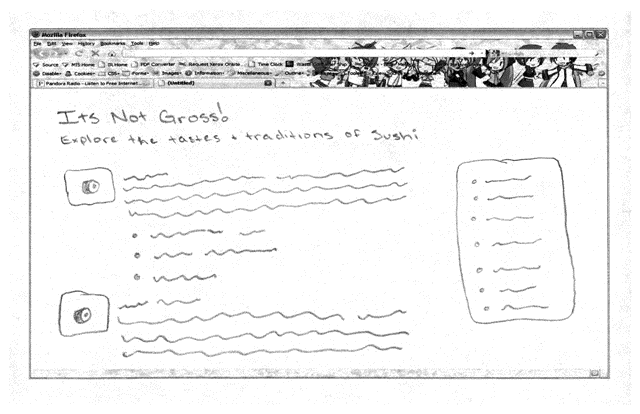 Mozilla Firefox
File Edit View History Bookmarks Tools Help
Source MIS:Home IILHome PDF Converter Request Nerex Onsite Time Clock
Disable Cookies CSS Forms Images Information Miscellaneous Outline
Pandora Radio - Listen to Free Internet... (Untitled)
Its Not Gross!
Explore the tastes + traditions of Sushi